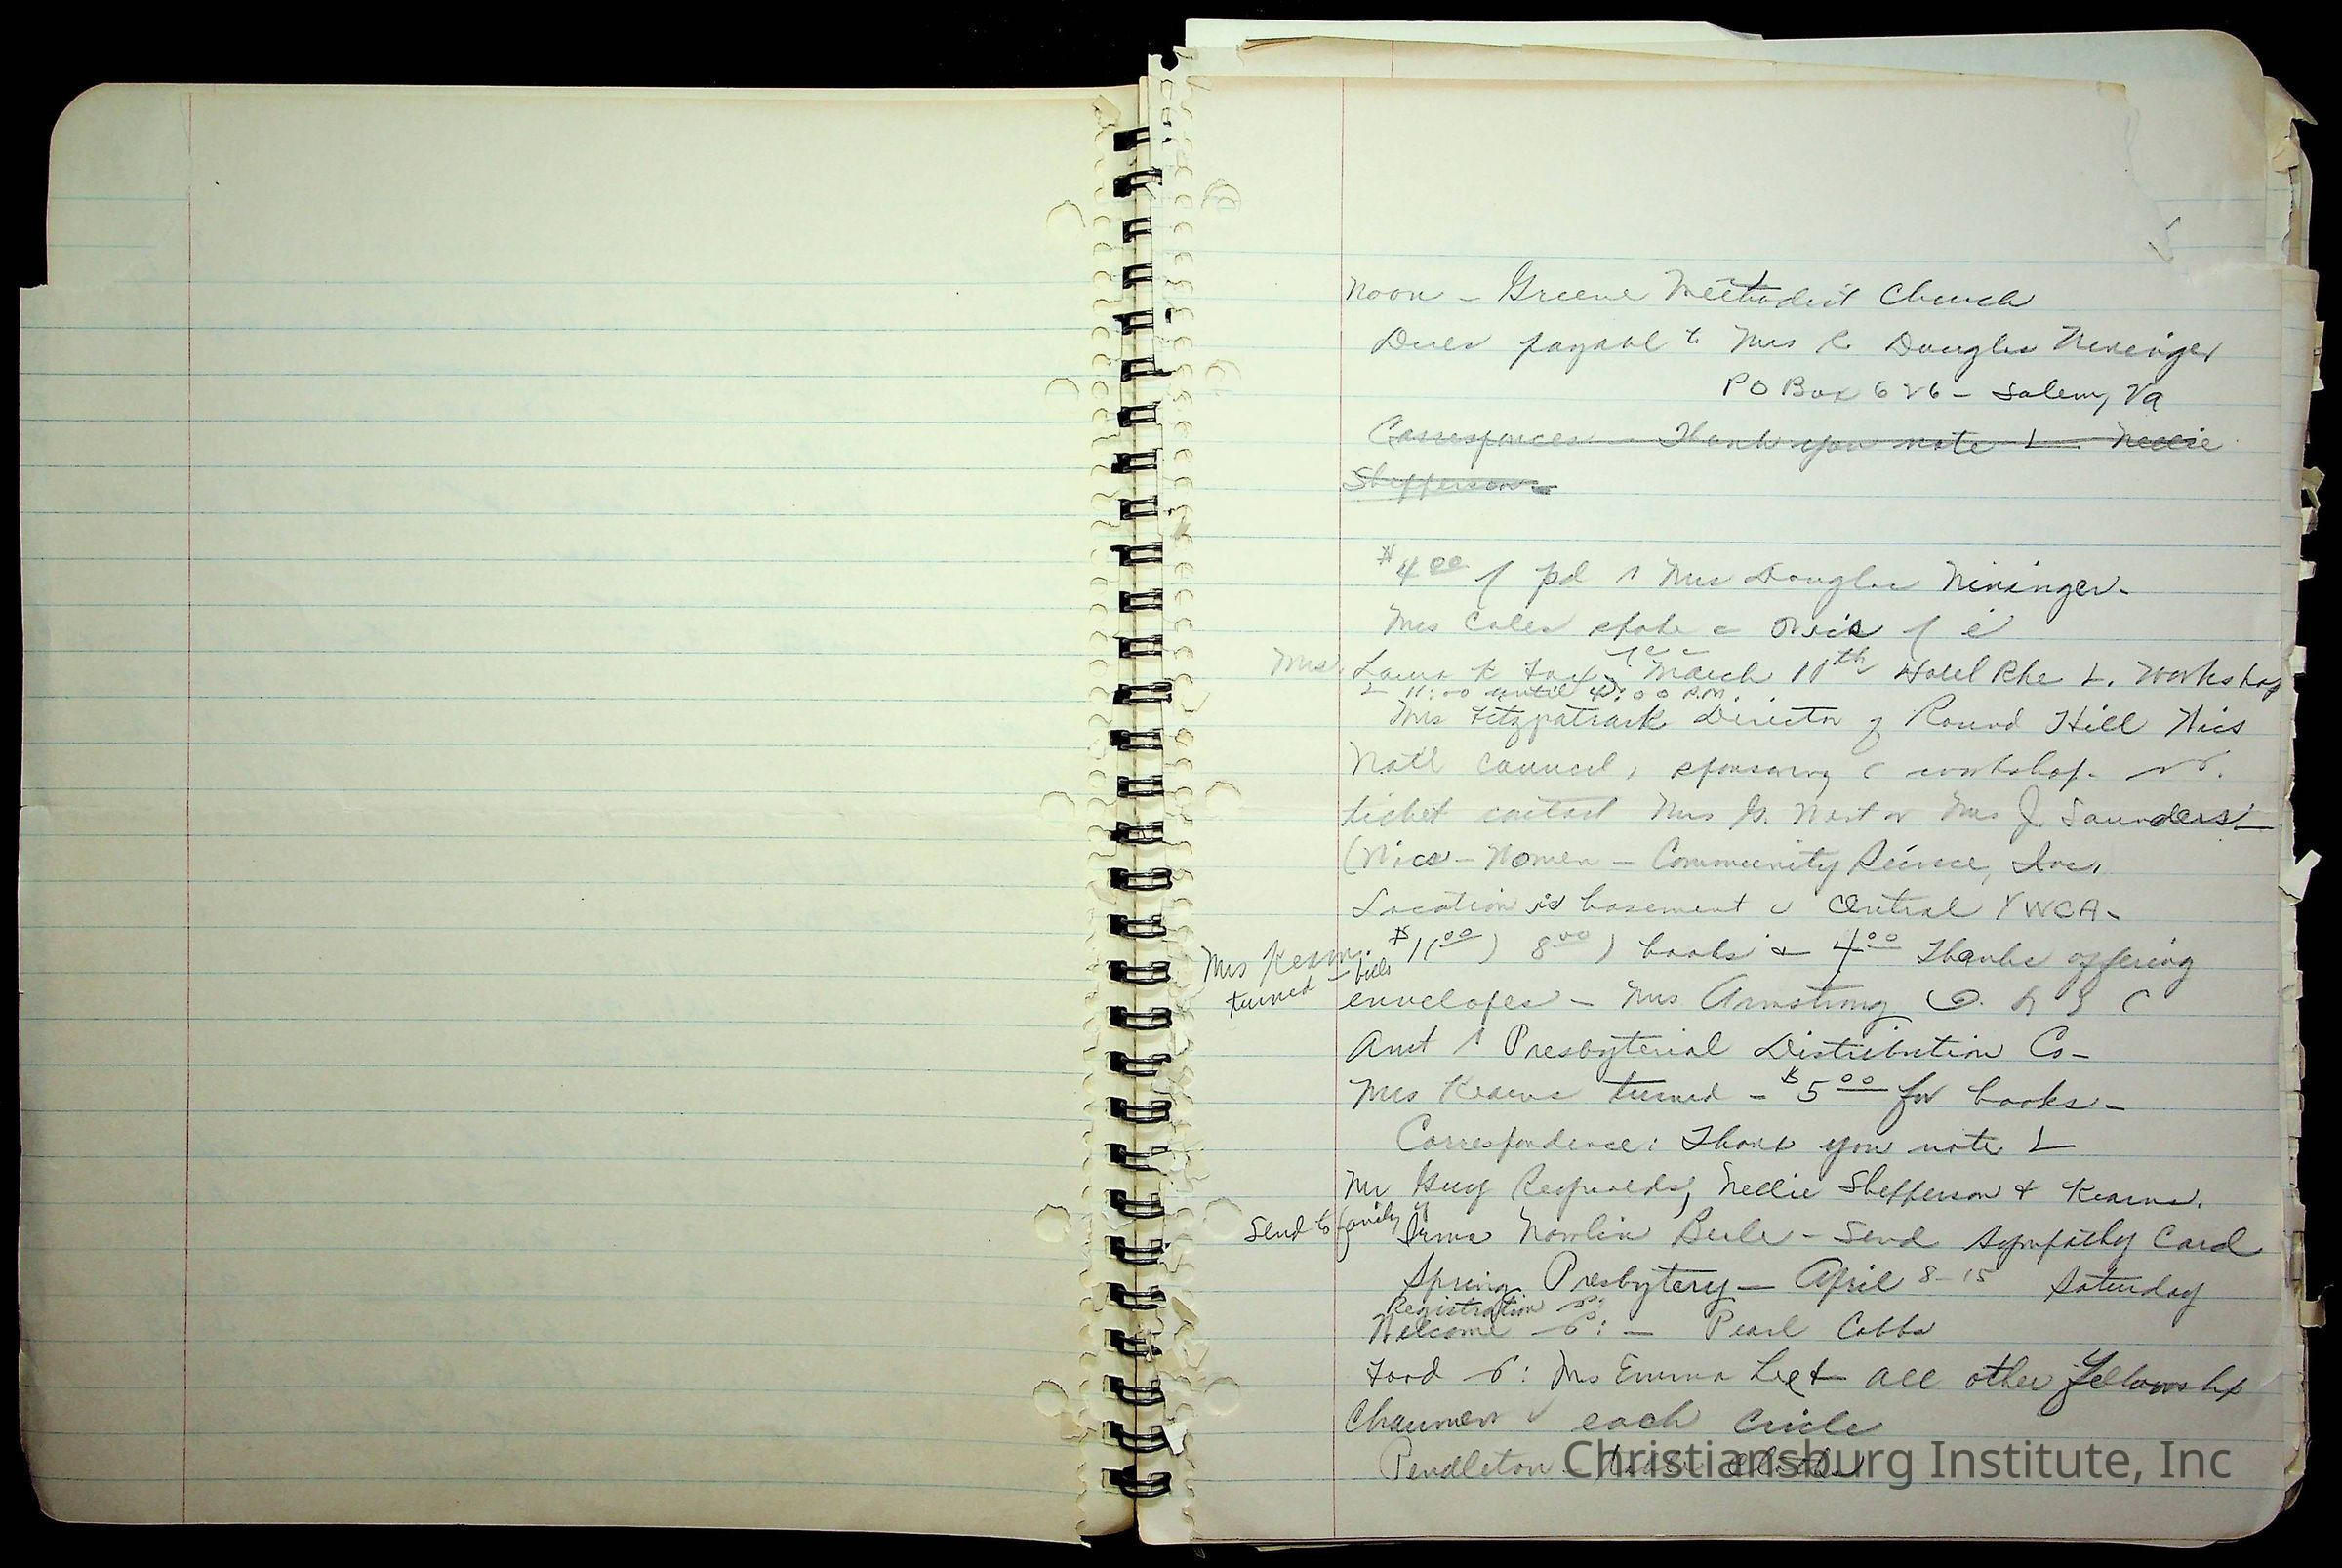 Noon - Greene Methodist Church
Dues payabl to Mrs R. Douglas Nininger
PO Box 626 - Salem, Va
Thank you note Nellie
Shefferson
$4.00 pd Mrs Douglas Nininger.
Mrs Coles
Mrs Laura K March 11th Hotel Rke L. Workshop
11:00 until 4:00 P.M.
Mrs Fitzpatrick Director of Round Hill Wics
Nat'l Council, sponsoring workshop.
ticket contact Mrs G. West or Mrs J. Saunders -
(Wics - Women - Community Service, Inc.
Location is basement Central YWCA -
Mrs Kearn $11.00 ) 8.00 ) books & 4.00 Thanks offering
turned
envelopes - Mrs Armstrong
Amt Presbyterial Distribution Co -
Mrs Kearns turned - $5.00 for books -
Correspondence: Thank you note
Mr Guy Reynolds, Nellie Shefferson & Kearns.
Send to family of Nowlin - Send Sympathy Card
Spring Presbytery - April 8-15 Saturday
Registration
Welcome : - Pearl Cobbs
Food : Mrs Emma Lee & all other Fellowship
Chairmen each Circle
Pendleton
Christiansburg Institute, Inc